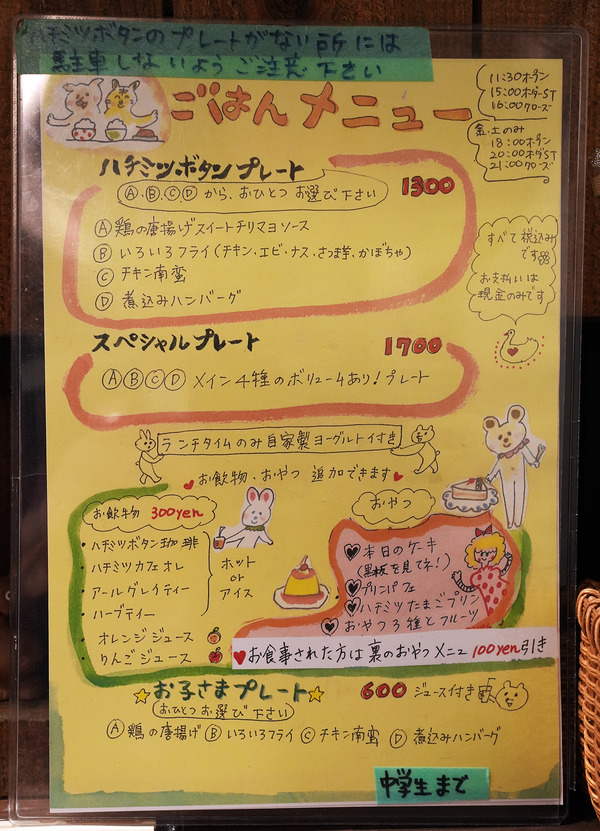 ハチミツボタンのプレートがない所には
駐車しないようご注意下さい
ごはんメニュー
11:30オープン
15:00オーダーST
16:00クローズ
金・土のみ
18:00オープン
20:00オーダST
21:00クローズ
ハチミツボタンプレート
Ⓐ.Ⓑ.Ⓒ.Ⓓから、おひとつお選び下さい
1300
Ⓐ鶏の唐揚げスイートチリマヨソース
Ⓑいろいろフライ(チキン、エビ・ナス、さつま芋、かぼちゃ)
Ⓒチキン南蛮
Ⓓ煮込みハンバーグ
すべて税込み
です
お支払いは
現金のみです
スペシャルプレート
1700
ⒶⒷⒸⒹメイン4種のボリュームあり!プレート
ランチタイムのみ自家製ヨーグルト付き
お飲物、おやつ 追加できます
お飲物 300yen
・ハチミツボタン珈琲
ハチミツカフェオレ
・アールグレイティー
・ハーブティー
ホット
or
アイス
オレンジジュース
りんごジュース
おやつ
本日のケーキ
(黒板を見てネ!)
プリンパフェ
ハチミツたまごプリン
おやつ3種とフルーツ
♥お食事された方は裏のおやつメニュー100yen引き
☆お子さまプレート☆
600 ジュース付き
おひとつお選び下さい
Ⓐ鶏の唐揚げ Ⓑいろいろフライ Ⓒチキン南蛮 Ⓓ煮込みハンバーグ
中学生まで